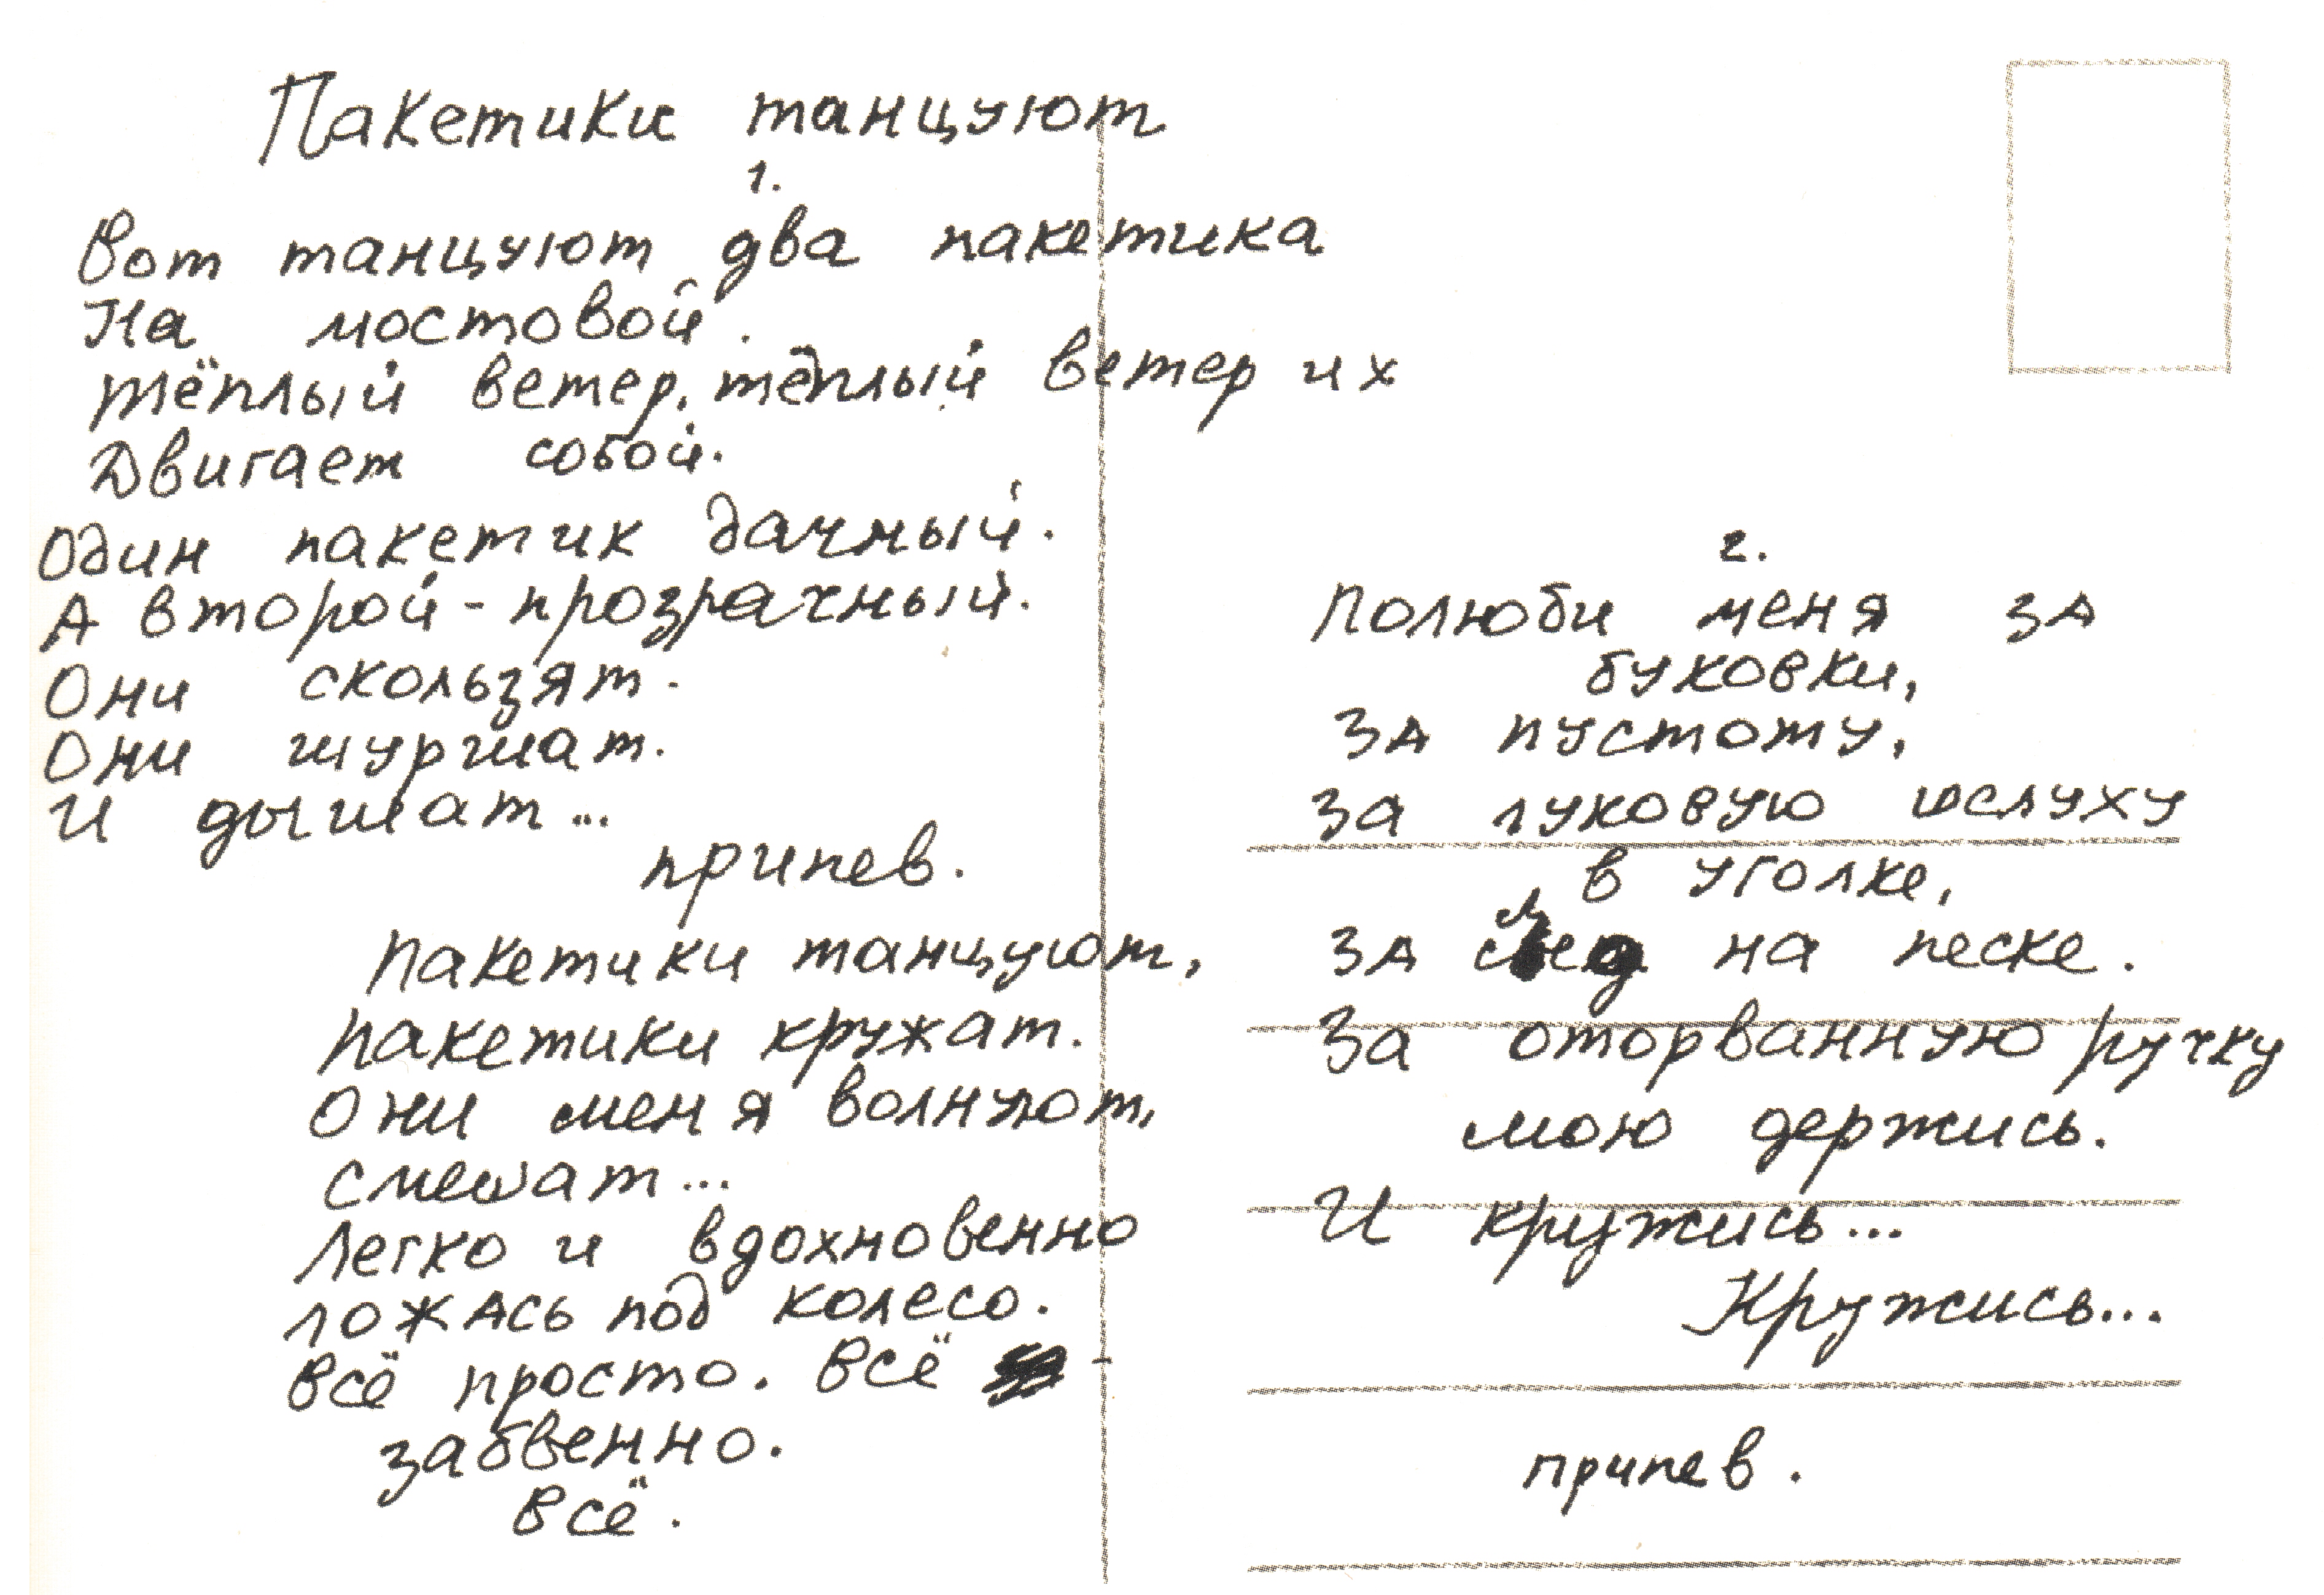 Пакетики танцуют
1.
Вот танцуют два пакетика
На мостовой.
Тёплый ветер, тёплый ветер их
Двигает собой.
Один пакетик дачный.
А второй - прозрачный.
Они скользят.
Они шуршат.
И дышат...
припев.
Пакетики танцуют,
Пакетики кружат.
Они меня волнуют,
смешат...
Легко и вдохновенно
ложась под колесо.
Всё просто. Всё -
забвенно.
Всё.
2.
Полюби меня за
буковки,
За пустоту,
За луковую шелуху
в уголке,
За след на песке.
За оторванную ручку
мою держись.
И кружись...
Кружись...
припев.